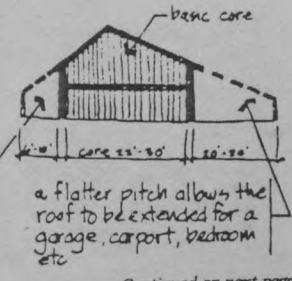 basic core
core 22'-30'
a flatter pitch allows the
roof to be extended for a
garage, carport, bedroom
etc